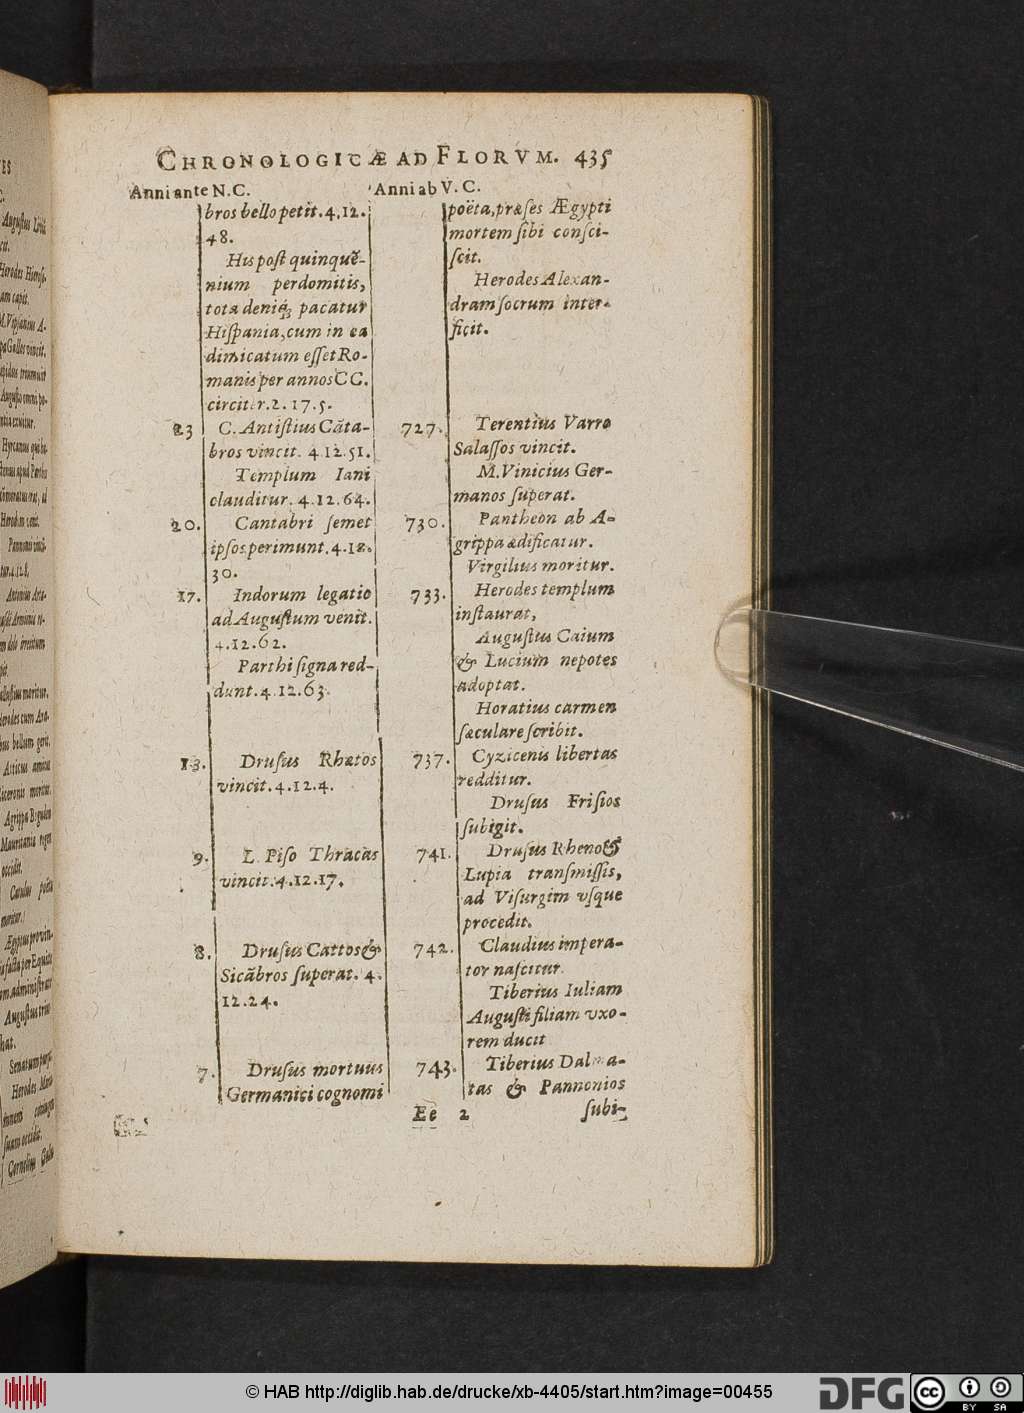 CHRONOLOGICÆ AD FLORVM. 435
Anni ante N.C.
bros bello petit. 4. 12.
48.
His post quinquē-
nium perdomitis,
tota deniq; pacatur
Hispania, cum in ea
dimicatum esset Ro-
manis per annos CC.
circiter. 2. 17. 5.
23 C. Antistius Cāta-
bros vincit. 4. 12. 51.
Templum Iani
clauditur. 4. 12. 64.
20. Cantabri semet
ipsos perimunt. 4. 12.
30.
17. Indorum legatio
ad Augustum venit.
4. 12. 62.
Parthi signa red-
dunt. 4. 12. 63.
13. Drusus Rhætos
vincit. 4. 12. 4.
9. L. Piso Thracas
vincit. 4. 12. 17.
8. Drusus Cattos &
Sicābros superat. 4.
12. 24.
7. Drusus mortuus
Germanici cognomi
Anni ab V. C.
poëta, præses Ægypti
mortem sibi consci-
scit.
Herodes Alexan-
dram socrum inter-
ficit.
727. Terentius Varro
Salassos vincit.
M. Vinicius Ger-
manos superat.
730. Pantheon ab A-
grippa ædificatur.
Virgilius moritur.
733. Herodes templum
instaurat,
Augustus Caium
& Lucium nepotes
adoptat.
Horatius carmen
sæculare scribit.
737. Cyzicenis libertas
redditur.
Drusus Frisios
subigit.
741. Drusus Rheno &
Lupia transmissis,
ad Visurgim vsque
procedit.
742. Claudius impera-
tor nascitur.
Tiberius Iuliam
Augusti filiam vxo-
rem ducit
743. Tiberius Dalma-
tas & Pannonios
Ee 2 subi-
© HAB http://diglib.hab.de/drucke/xb-4405/start.htm?image=00455
DFG
cc
BY SA